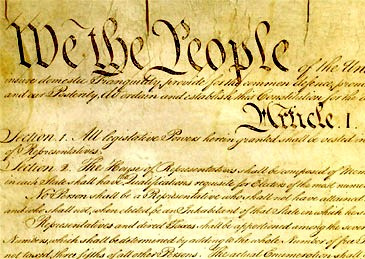 We the People of the Uni
insure domestic Tranquility, provide for the common defence, prom
and our Posterity, do ordain and establish this Constitution for the
Article. I.
Section. 1. All legislative Powers herein granted shall be vested in
of Representatives.
Section. 2. The House of Representatives shall be composed of Mem
in each State shall have the Qualifications requisite for Electors of the most nume
No Person shall be a Representative who shall not have attained
and who shall not, when elected, be an Inhabitant of that State in which he s
Representatives and direct Taxes shall be apportioned among the seve
Numbers, which shall be determined by adding to the whole Number of free P
not taxed, three fifths of all other Persons. The actual Enumeration shall